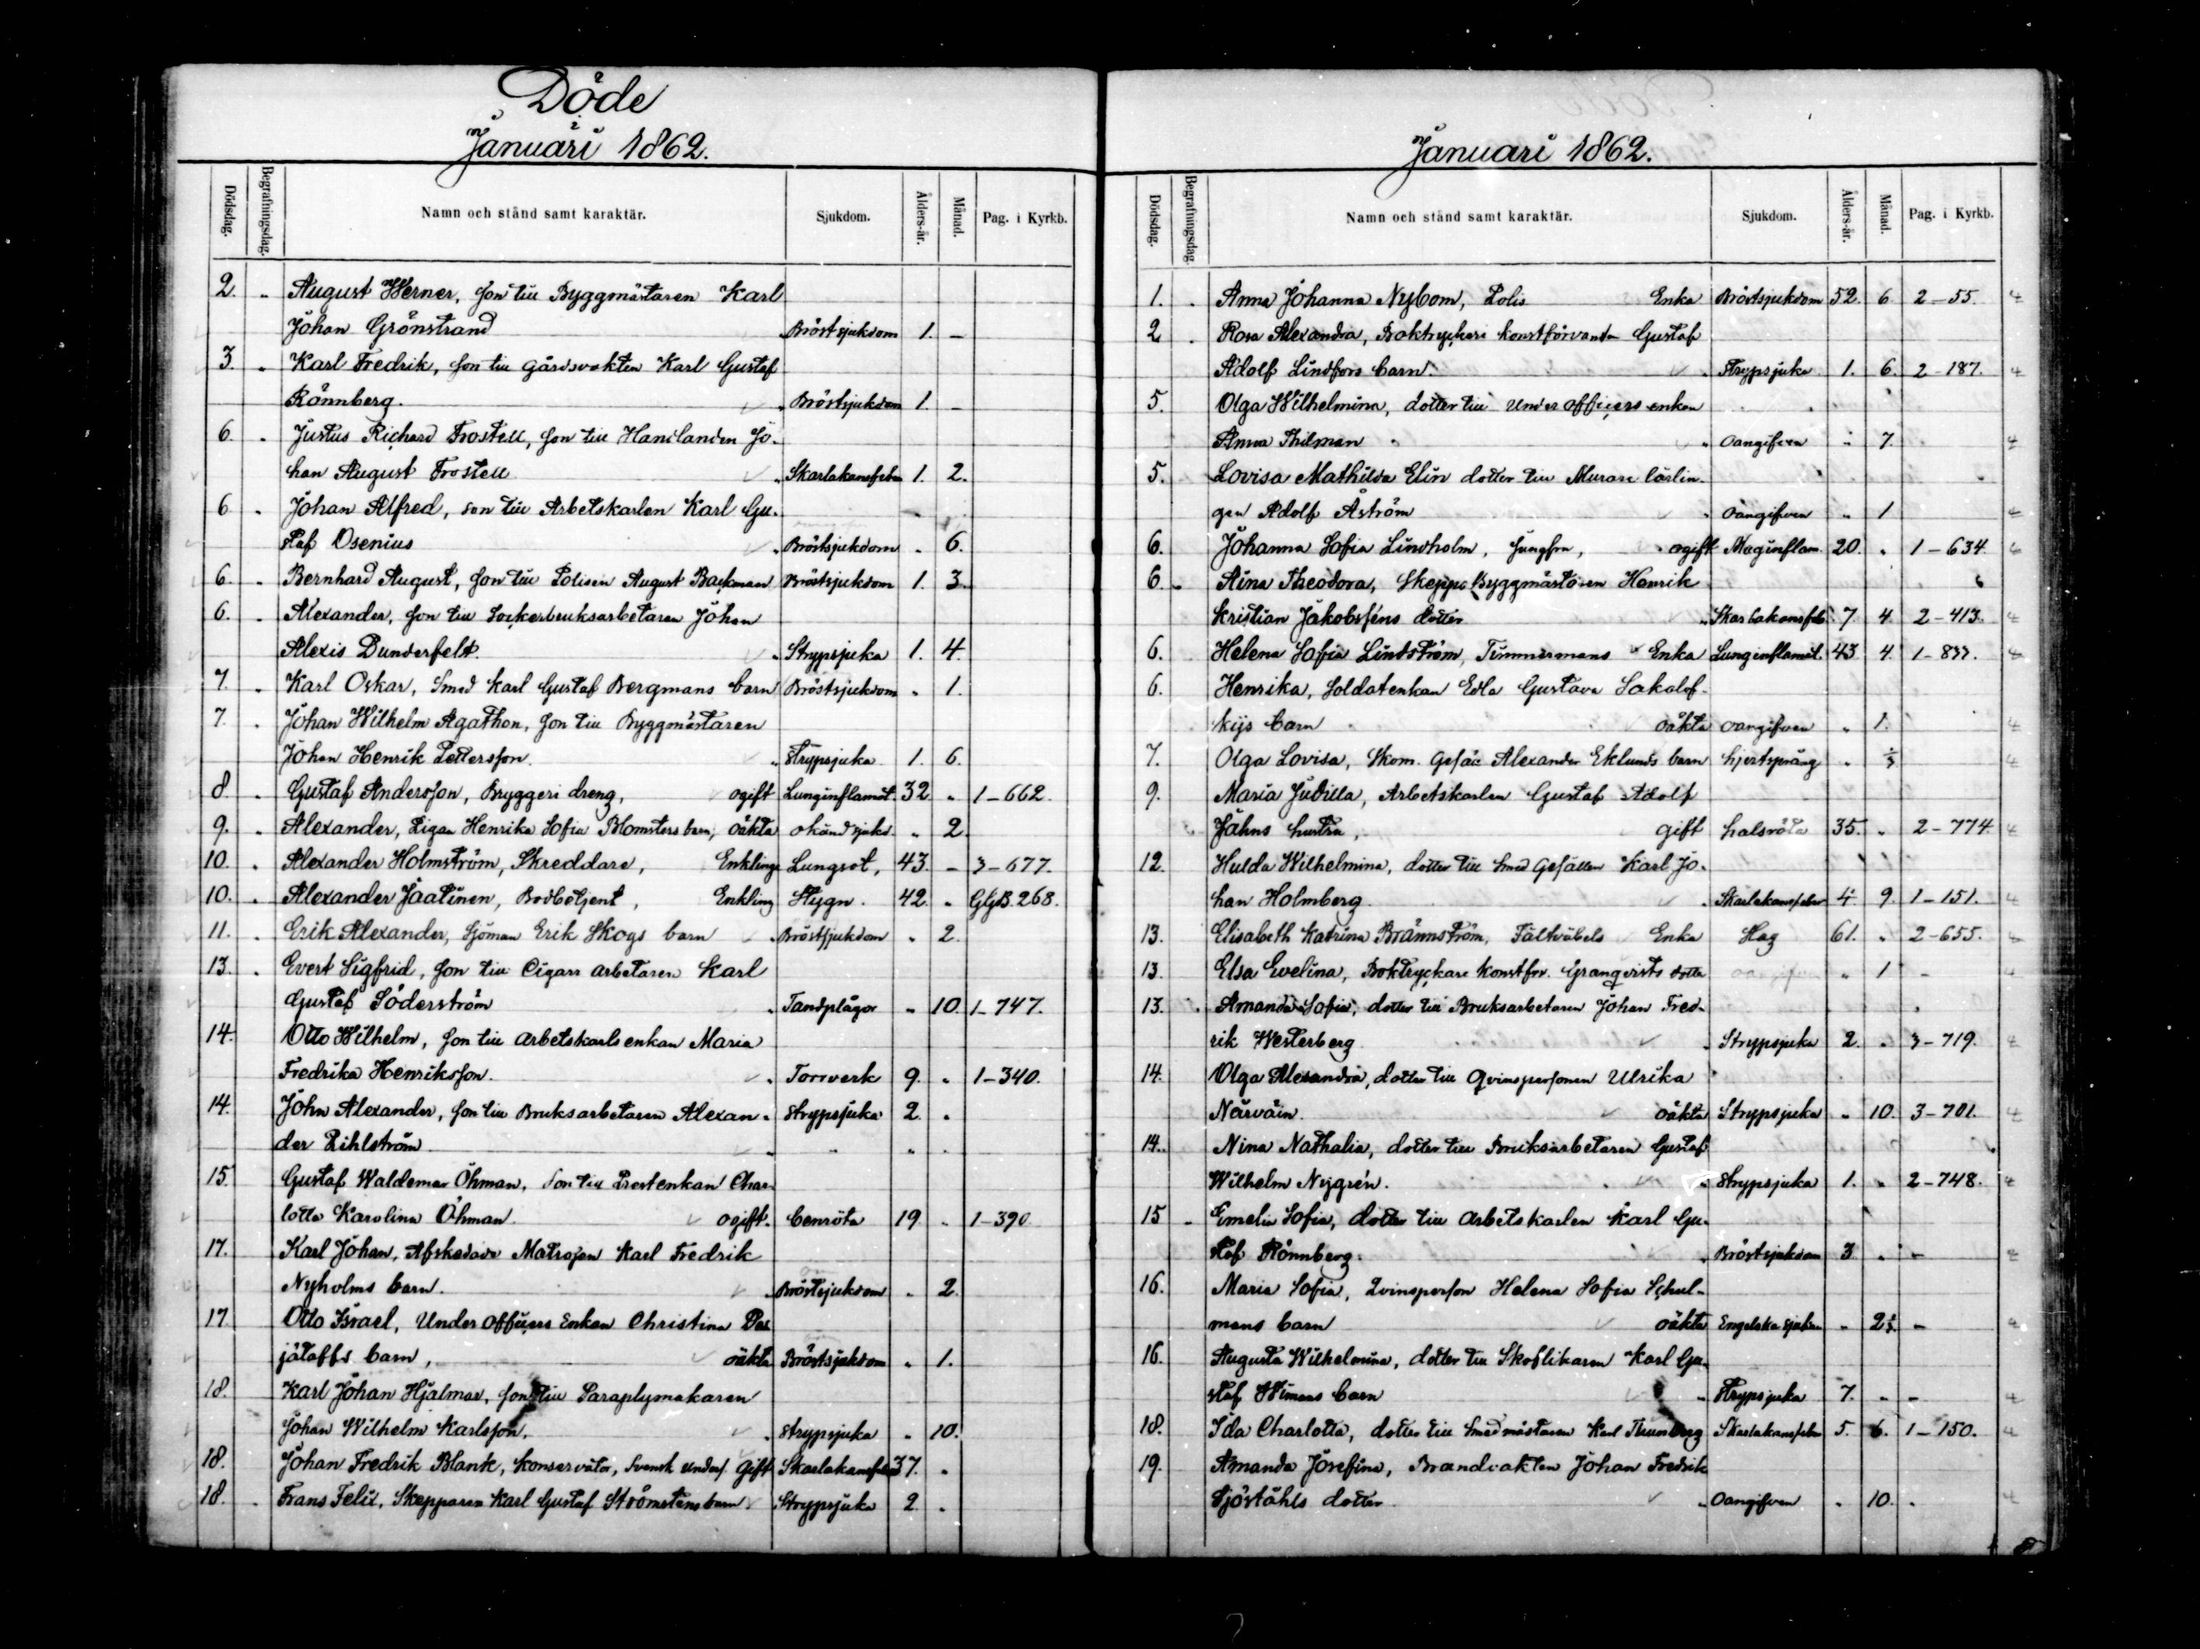 Döde
i
Januari 1862.
Dödsdag. Begrafningsdag. Namn och stånd samt karaktär. Sjukdom. Ålders-år. Månad. Pag. i Kyrkb.
2. " August Werner, son till Byggmästaren Karl
Johan Grönstrand " Bröstsjukdom 1. –
3. " Karl Fredrik, son till gårdsvakten Karl Gustaf
Rönnberg. " Bröstsjukdom 1. –
6. " Justus Richard Frostell, son till Handlanden Jo-
han August Frostell " Skarlakansfeber 1. 2.
6. " Johan Alfred, son till Arbetskarlen Karl Gu-
staf Osenius " Bröstsjukdom " 6.
6. " Bernhard August, son till Polisen August Backman Bröstsjukdom 1. 3.
6. " Alexander, son till Sockerbruksarbetaren Johan
Alexis Dunderfelt. " Strypsjuka 1. 4.
7. " Karl Oskar, Smed Karl Gustaf Bergmans barn Bröstsjukdom " 1.
7. " Johan Wilhelm Agathon, son till Byggmästaren
Johan Henrik Pettersson. " Strypsjuka 1. 6.
8. " Gustaf Andersson, Bryggeri dreng, ogift Lunginflamat. 32 " 1–662.
9. " Alexander, Pigan Henrika Sofia Blomsters barn, oäkta okänd sjukd. " 2.
10. " Alexander Holmström, Skreddare, Enkling Lungsot, 43. – 3–677.
10. " Alexander Jaatinen, Bodbetjent, Enkling Hygn. 42. " GGB. 268.
11. " Erik Alexander, Sjöman Erik Skogs barn " Bröstsjukdom " 2.
13. " Evert Sigfrid, son till Cigarr arbetaren Karl
Gustaf Söderström " Tandplågor " 10. 1–747.
14. Otto Wilhelm, son till arbetskarls enkan Maria
Fredrika Henriksson. " Torrverk 9. " 1–340.
14. John Alexander, son till Bruksarbetaren Alexan- Strypsjuka 2. "
der Pihlström " " " "
15. Gustaf Waldemar Öhman, Son till Prestenkan Char-
lotta Karolina Öhman. ogift. benröta 19 " 1–390
17. Karl Johan, Afskedade Matrosen Karl Fredrik
Nyholms barn. " Bröstsjukdom " 2.
17. Otto Israel, Under officers Enkan Christina Das
jätaffs barn, oäkta Bröstsjukdom " 1.
18. Karl Johan Hjalmar, son till Paraplymakaren
Johan Wilhelm Karlsson. " Strypsjuka " 10.
18. Johan Fredrik Blank, Konservator, Svensk unders. Gift Skarlakansfeber 37. "
18. " Frans Felix, Skepparen Karl Gustaf Strömstens barn Strypsjuka 2. "
Januari 1862.
Dödsdag. Begrafningsdag. Namn och stånd samt karaktär. Sjukdom. Ålders-år. Månad. Pag. i Kyrkb.
1. " Anna Johanna Nybom, Polis Enka Bröstsjukdom 52. 6. 2–55.
2 " Rosa Alexandra, Boktryckeri konstförvanten Gustaf
Adolf Lindfors barn. " Strypsjuka 1. 6. 2–187.
5. Olga Wilhelmina, dotter till under officers enkan
Anna Thilman " Oangifven " 7.
5. Lovisa Mathilda Elin dotter till Murare lärlin-
gen Adolf Åström " Oangifven " 1
6. Johanna Sofia Lindholm, Jungfru, ogift Maginflam. 20. " 1–634.
6. " Aina Theodora, Skepps Byggmästaren Henrik
Kristian Jakobsséns dotter " Skarlakansfeb. 7 4. 2–413.
6. Helena Sofia Lindström, Timmermans Enka Lunginflamat. 43 4. 1–837.
6. Henrika, Soldatenkan Edla Gustava Sakalof-
kijs barn oäkta oangifven " 1.
7. Olga Lovisa, Skom. Gesäll Alexander Eklunds barn hjertspräng " ½
9. Maria Judilla, Arbetskarlen Gustaf Adolf
Jahns hustru, gift halsröta 35. " 2–774.
12. Hulda Wilhelmina, dotter till Smed Gesällen Karl Jo-
han Holmberg. " Skarlakansfeber 4. 9. 1–151.
13. Elisabeth Katrina Brännström, Fältväbels Enka Hag 61. " 2–655.
13. Elsa Evelina, Boktryckare konstför. Granqvists dotter oangifven " 1 –
13. Amanda Sofia, dotter till Bruksarbetaren Johan Fred-
rik Westerberg. " Strypsjuka 2. " 3–719.
14. Olga Alexandra, dotter till Qvinspersonen Ulrika
Närväin. oäkta Strypsjuka " 10. 3–701.
14. Nina Nathalia, dotter till Bruksarbetaren Gustaf
Wilhelm Nygrén. " Strypsjuka 1. " 2–748.
15 " Emelia Sofia, dotter till arbetskarlen Karl Gu-
staf Rönnberg. " Bröstsjukdom 3. " –
16. Maria Sofia, Qvinsperson Helena Sofia Schul-
mans barn oäkta Engelska sjukan " 2½ –
16. Augusta Wilhelmina, dotter till Skoflikaren Karl Gu-
staf Wimans barn " Strypsjuka 7. " –
18. Ida Charlotta, dotter till Smedmästaren Karl Thunberg Skarlakansfeber 5. 6. 1–150.
19. Amanda Josefina, Brandvakten Johan Fredrik
Sjöståhls dotter. " Oangifven " 10. "